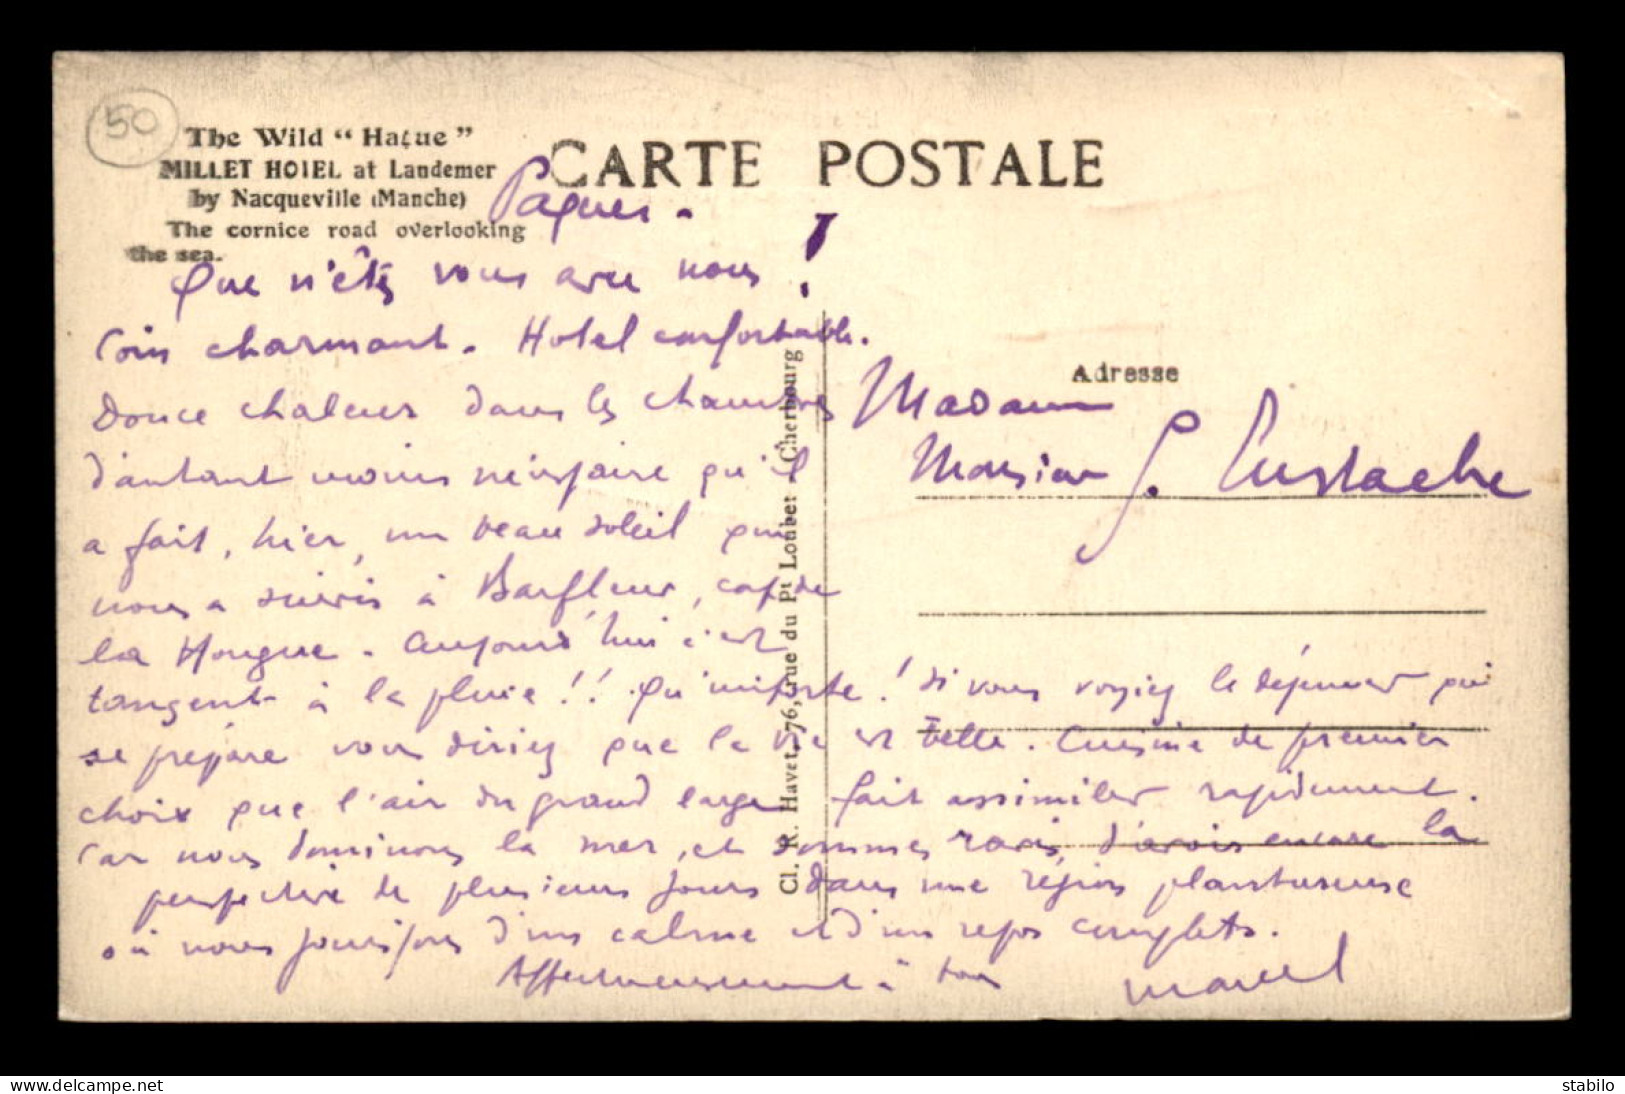 50
The Wild “ Hague ”
MILLET HOTEL at Landemer
by Nacqueville (Manche)
The cornice road overlooking
the sea.
CARTE POSTALE
Pâques.
Que n'êtes vous avec nous !
Coin charmant. Hotel confortable.
Douce chaleur dans les chambres
d'autant moins nécessaire qu'il
a fait, hier, un beau soleil qui
nous a suivis à Barfleur, cap de
la Hougue. Aujourd'hui c'est
tangent à la pluie !! Qu'importe ! Si vous voyiez le déjeuner qui
se prépare vous diriez que la vie est belle. Cuisine de premier
choix que l'air du grand large fait assimiler rapidement.
Car nous dominons la mer, et sommes ravis d'avoir encore la
perspective de plusieurs jours dans une région plantureuse
où nous jouissons d'un calme et d'un repos complets.
Affectueusement à tous
Marcel
Adresse
Madame
Monsieur G. Eustache
Cl. R. Havet, 76, rue du Pt Loubet - Cherbourg
delcampe.net
stabilo